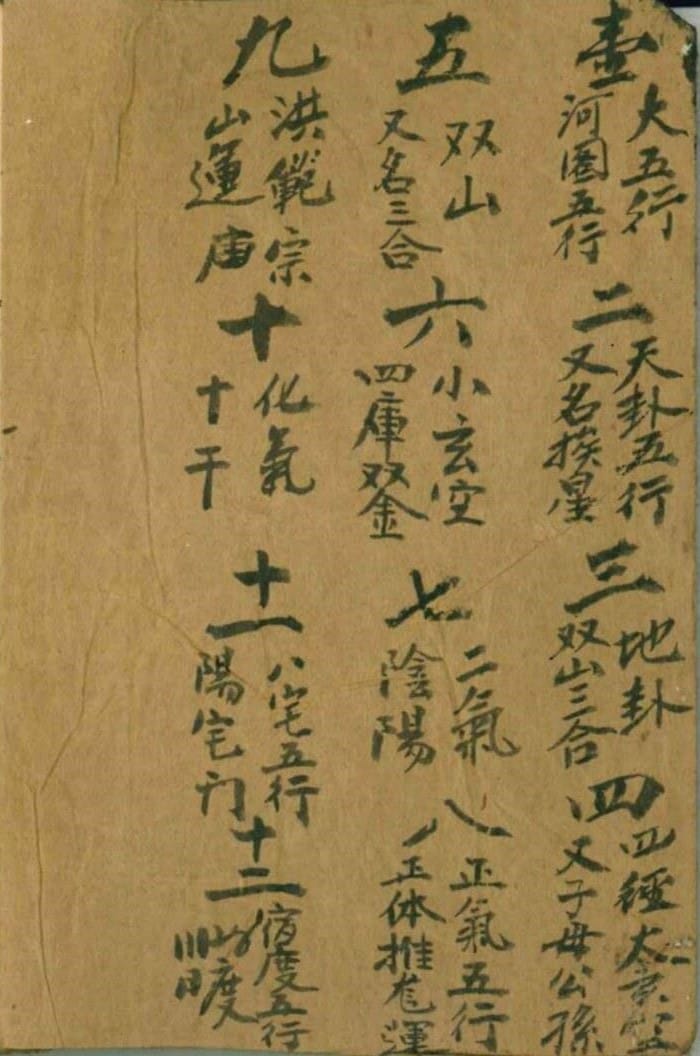 壹
大五行
河圖五行
二
天卦五行
又名挨星
三
地卦
双山三合
四
四經大玄空
又子母公孫
五
双山
又名三合
六
小玄空
四庫双金
七
二氣
陰陽
八
正氣五行
正体推尨運
九
洪範宗
山運庙
十
化氣
十干
十一
八宅五行
陽宅门
十二
宿度五行
度